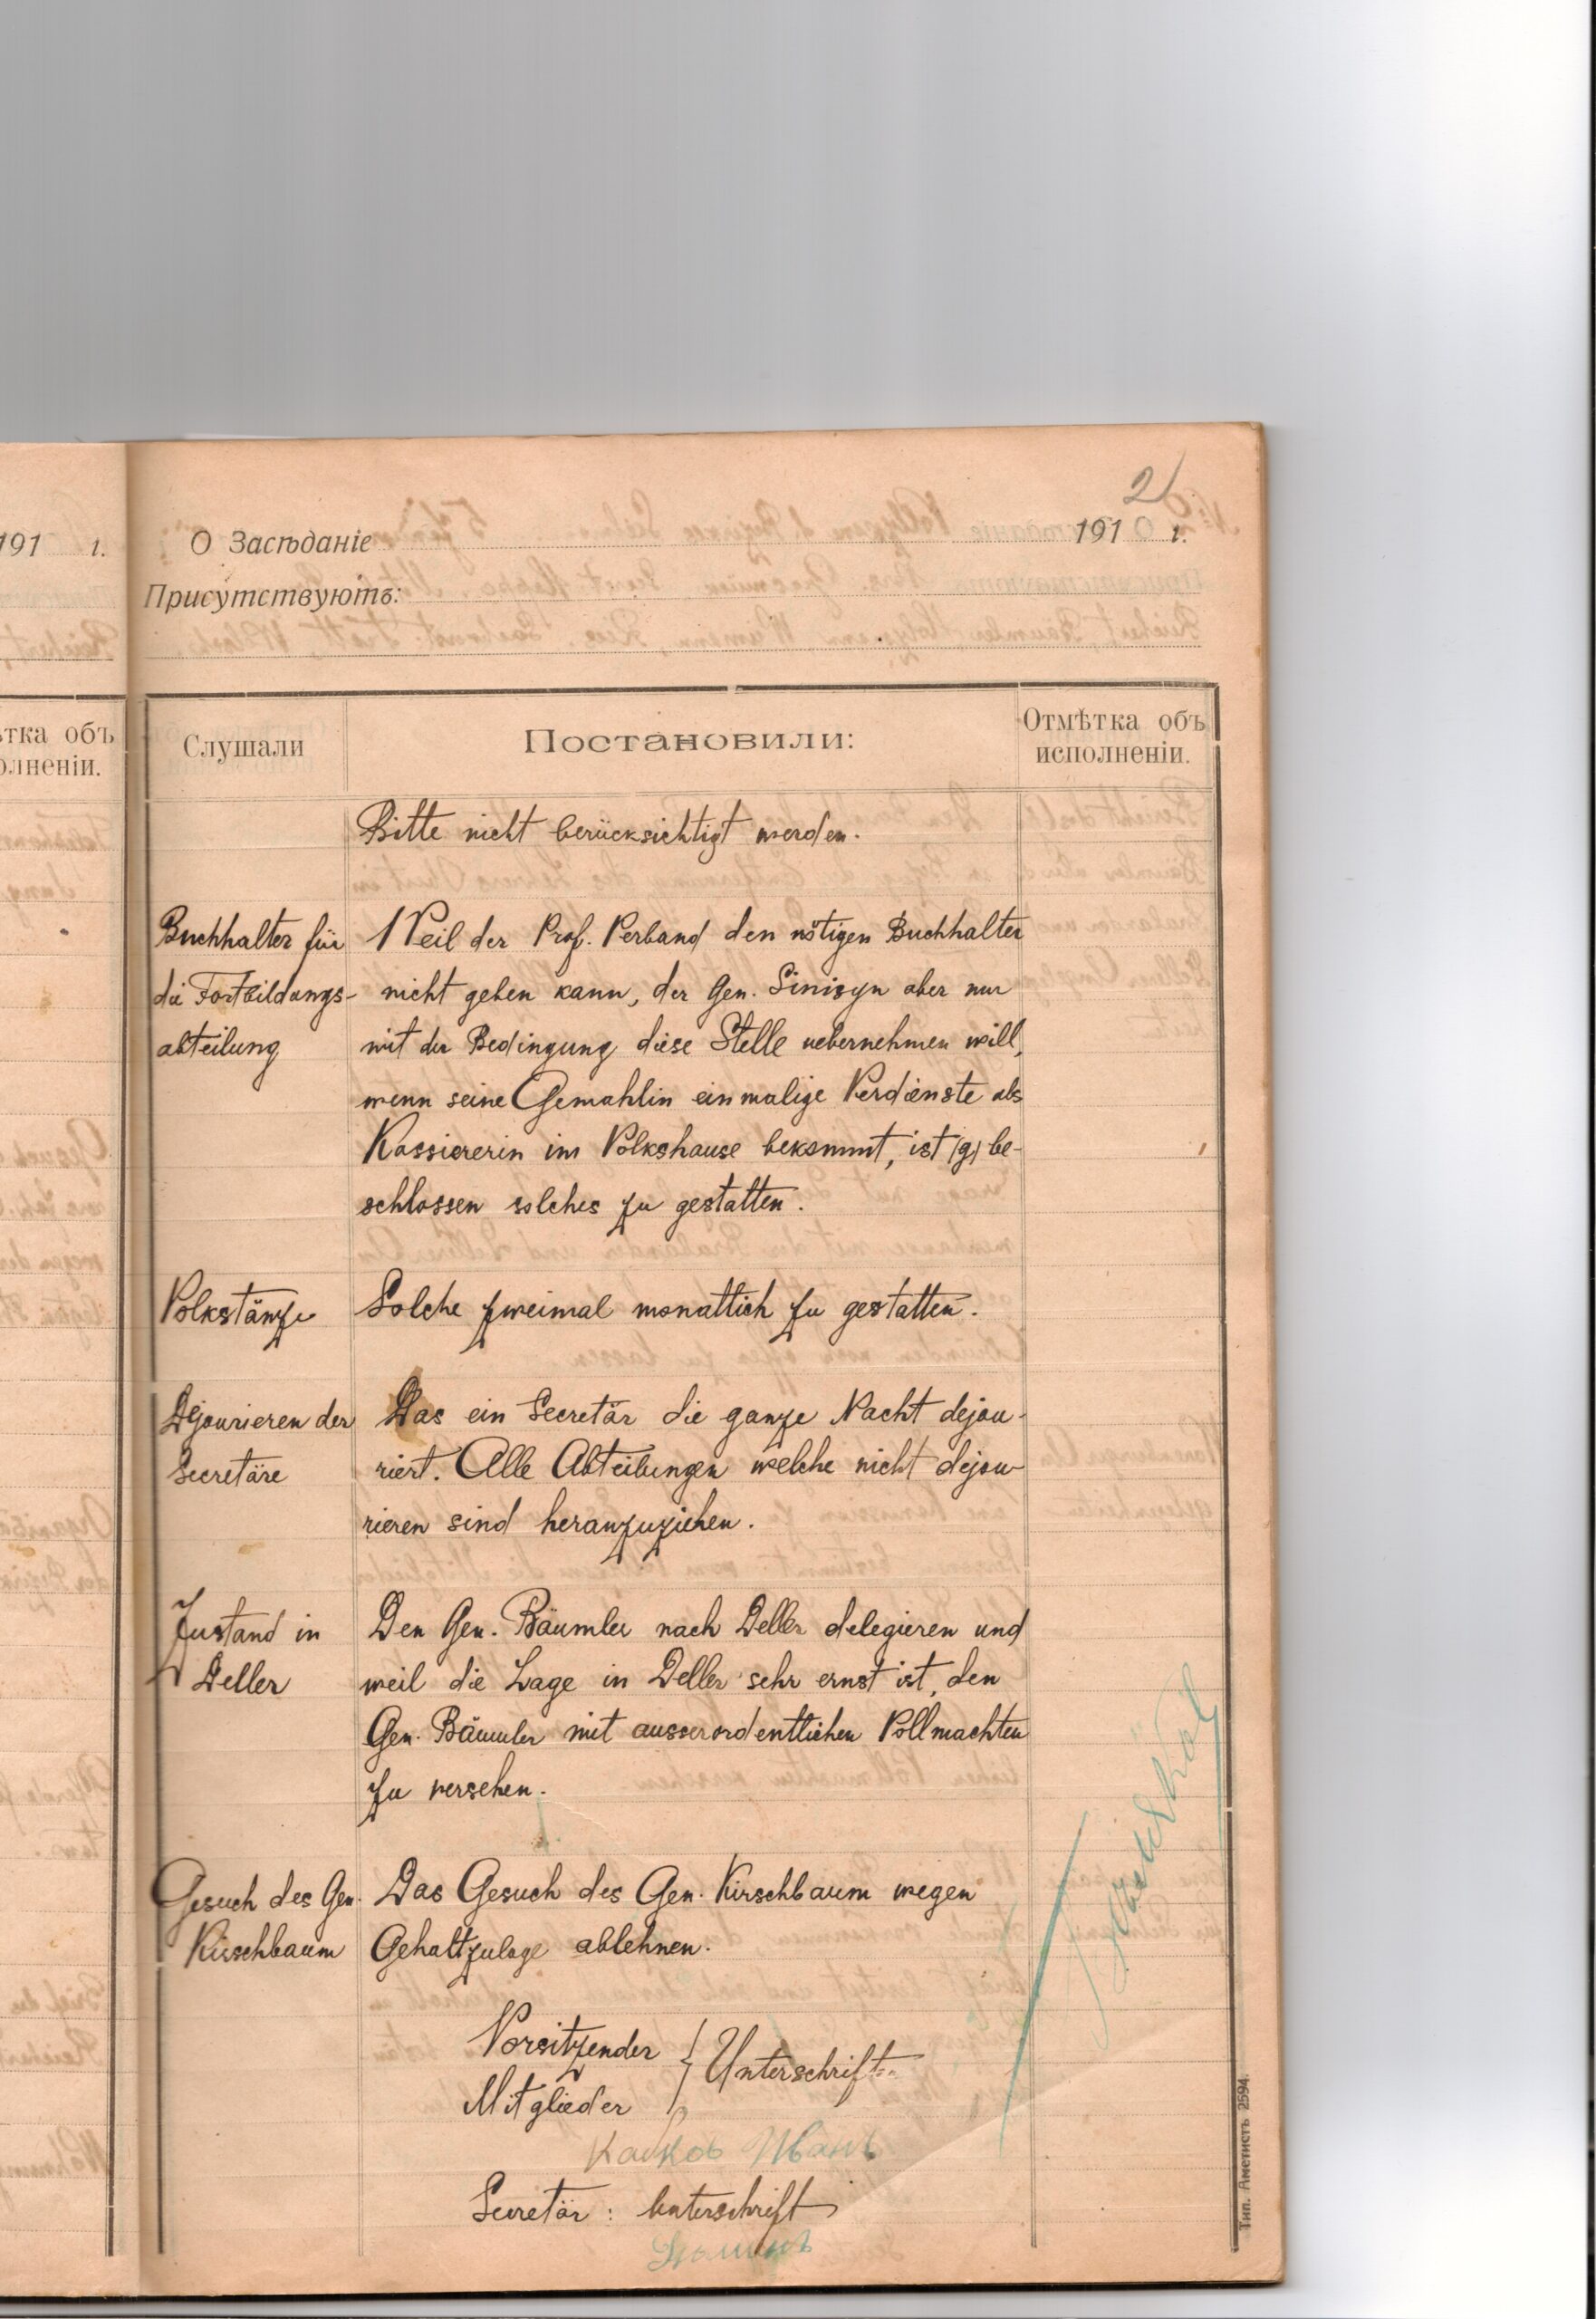 2
О Засѣданіе 191 г.
Присутствуютъ:
191 г.
Слушали
Постановили:
Отмѣтка объ
исполненіи.
Bitte nicht berücksichtigt werden.
Buchhalter für
die Fortbildungs-
abteilung
Weil der Prof. Verband den nötigen Buchhalter
nicht geben kann, der Gen. Sinizyn aber nur
mit der Bedingung diese Stelle uebernehmen will,
wenn seine Gemahlin einmalige Verdienste als
Kassiererin im Volkshause bekommt, ist (g) be-
schlossen solches zu gestatten.
Volkstänze
Solche zweimal monatlich zu gestatten.
Dejourieren der
Secretäre
Das ein Secretär die ganze Nacht dejou-
riert. Alle Abteilungen welche nicht dejou-
rieren sind heranzuziehen.
Zustand in
Deller
Den Gen. Bäumler nach Deller delegieren und
weil die Lage in Deller sehr ernst ist, den
Gen. Bäumler mit ausserordentlichen Vollmachten
zu versehen.
Gesuch des Gen.
Kirschbaum
Das Gesuch des Gen. Kirschbaum wegen
Gehaltzulage ablehnen.
Vorsitzender
Mitglieder
} Unterschriften
Secretär: Unterschrift
Тип. Аметистъ 2594.